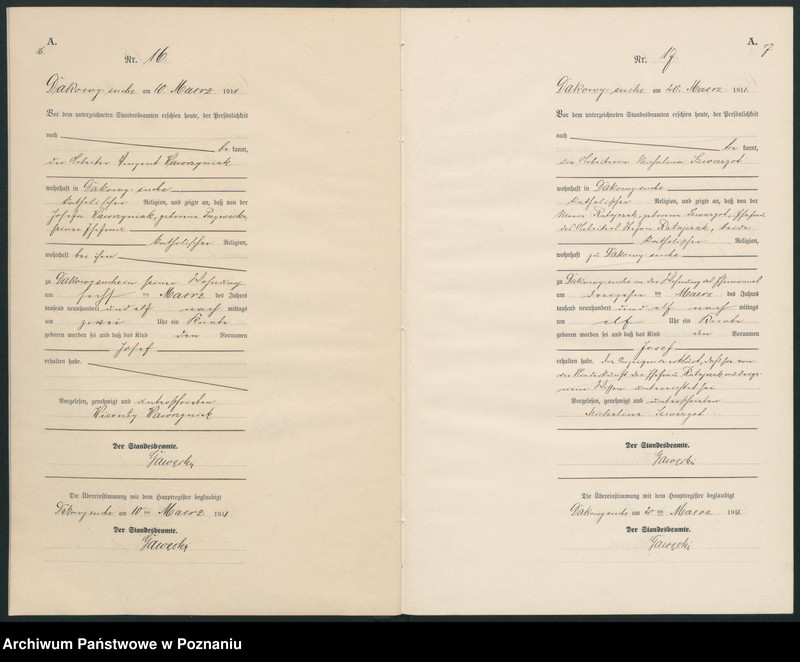 16.
A.
Nr. 16
Dakowy suche am 10 Maerz 1911
Vor dem unterzeichneten Standesbeamten erschien heute, der Persönlichkeit
nach
be kannt,
der Arbeiter Vinzent Kawrzyniak
wohnhaft in Dakowy suche
katholischer Religion, und zeigte an, daß von der
Josefa Kawrzyniak, geborene
seiner Ehefrau
katholischer Religion,
wohnhaft bei ihm
zu Dakowy suche in seiner Wohnung
am sechsten Maerz des Jahres
tausend neunhundert und elf nach mittags
um zwei Uhr ein Knabe
geboren worden sei und daß das Kind den Vornamen
Josef
erhalten habe.
Vorgelesen, genehmigt und unterschrieben
Wicenty Kawrzyniak
Der Standesbeamte.
Gawęcki
Die Übereinstimmung mit dem Hauptregister beglaubigt
Dakowy suche am 10 ten Maerz 1911
Der Standesbeamte.
Gawęcki
A.
17
Nr. 17
Dakowy suche am 20. Maerz 1911
Vor dem unterzeichneten Standesbeamten erschien heute, der Persönlichkeit
nach
be kannt,
die Arbeiterin Michalina Szwargot
wohnhaft in Dakowy suche
katholischer Religion, und zeigte an, daß von der
Maria Ratajczak, geborene Szwargot, Ehefrau
des Arbeiters Ratajczak, beide
katholischer Religion,
wohnhaft zu Dakowy suche
zu Dakowy suche in der Wohnung des Ehemannes
am dreizehn ten Maerz des Jahres
tausend neunhundert und elf nach mittags
um elf Uhr ein Knabe
geboren worden sei und daß das Kind den Vornamen
Josef
erhalten habe. Die Anzeigende erklärt, daß sie von
der Niederkunft der Ehefrau Ratajczak aus eige
nem Wissen unterrichtet sei
Vorgelesen, genehmigt und unterschrieben
Michalina Szwargot
Der Standesbeamte.
Gawęcki
Die Übereinstimmung mit dem Hauptregister beglaubigt
Dakowy suche am 20 ten Maerz 1911
Der Standesbeamte.
Gawęcki
Archiwum Państwowe w Poznaniu